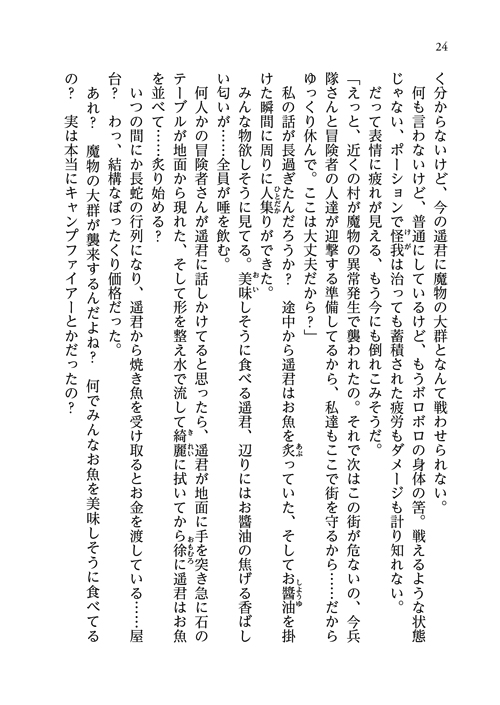 24
く分からないけど、今の遥君に魔物の大群となんて戦わせられない。
何も言わないけど、普通にしているけど、もうボロボロの身体の筈。戦えるような状態
じゃない、ポーションで怪我は治っても蓄積された疲労もダメージも計り知れない。
だって表情に疲れが見える、もう今にも倒れこみそうだ。
「えっと、近くの村が魔物の異常発生で襲われたの。それで次はこの街が危ないの、今兵
隊さんと冒険者の人達が迎撃する準備してるから、私達もここで街を守るから……だから
ゆっくり休んで。ここは大丈夫だから？」
私の話が長過ぎたんだろうか？　途中から遥君はお魚を炙っていた、そしてお醬油を掛
けた瞬間に周りに人集りができた。
みんな物欲しそうに見てる。美味しそうに食べる遥君、辺りにはお醬油の焦げる香ばし
い匂いが……全員が唾を飲む。
何人かの冒険者さんが遥君に話しかけてると思ったら、遥君が地面に手を突き急に石の
テーブルが地面から現れた、そして形を整え水で流して綺麗に拭いてから徐に遥君はお魚
を並べて……炙り始める？
いつの間にか長蛇の行列になり、遥君から焼き魚を受け取るとお金を渡している……屋
台？　わっ、結構なぼったくり価格だった。
あれ？　魔物の大群が襲来するんだよね？　何でみんなお魚を美味しそうに食べてる
の？　実は本当にキャンプファイアーとかだったの？